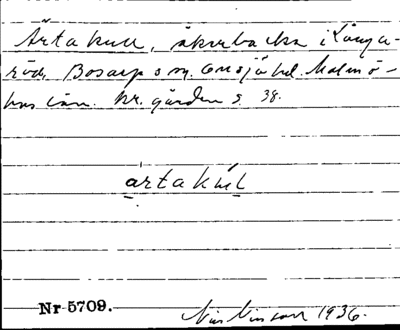 Ärtakull, åkerbacka i Långa-
röd, Bosarp sn. Onsjö hd. Malmö-
hus län. Nr. gården s. 38.
ärtakul
Nr 5709.
Nils Nilsson 1936.